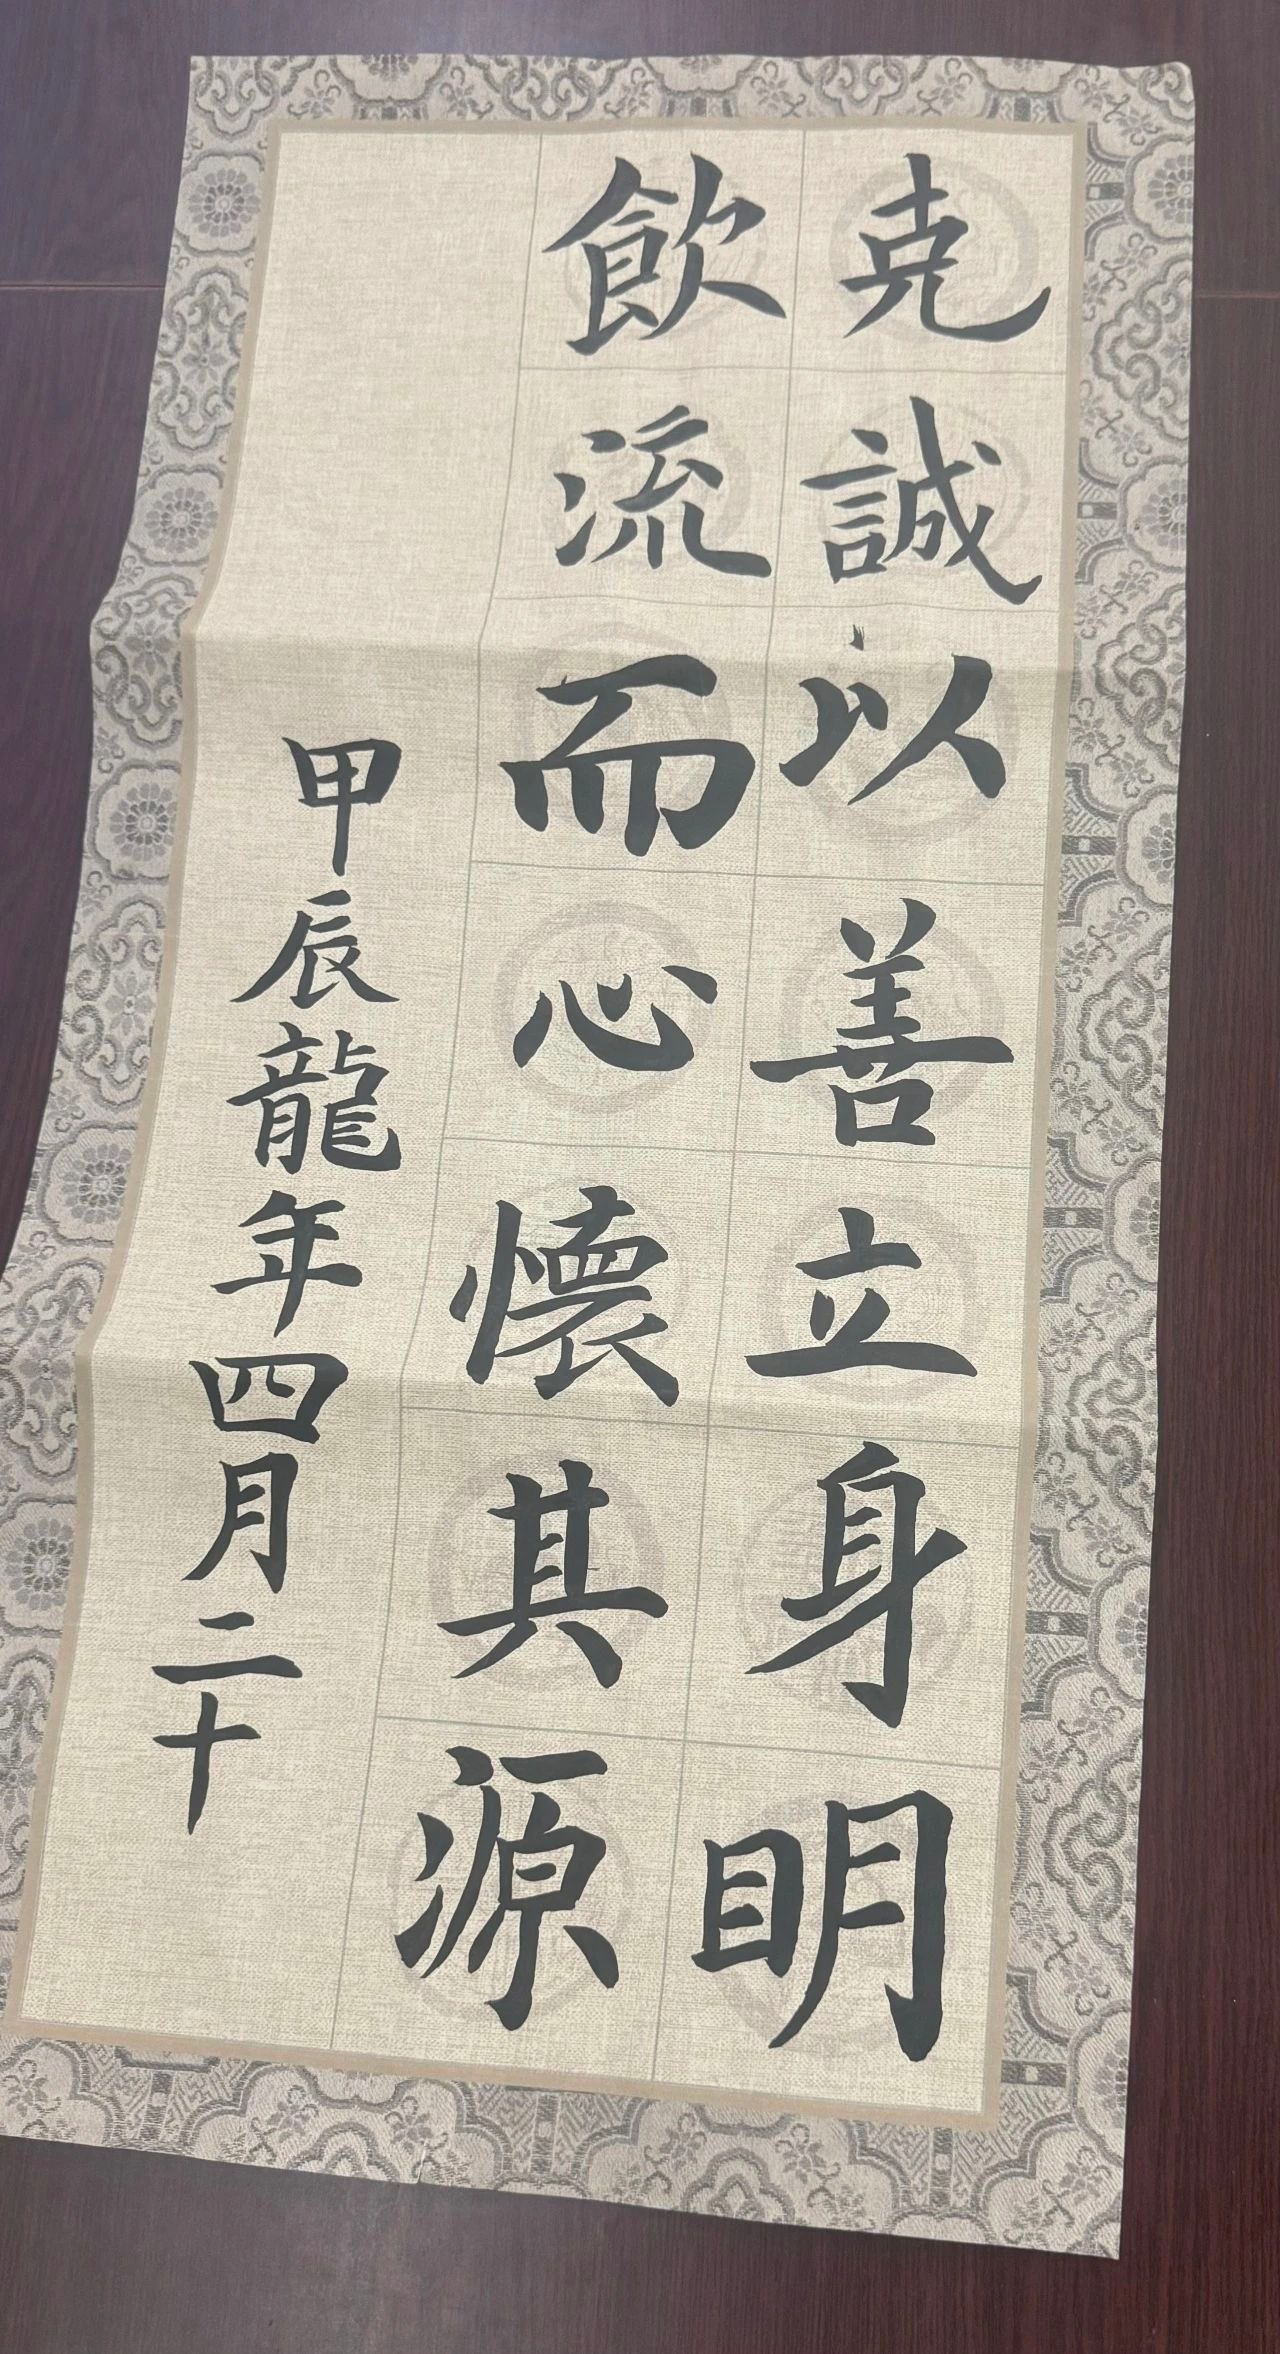 克誠以善立身明
飲流而心懷其源
甲辰龍年四月二十